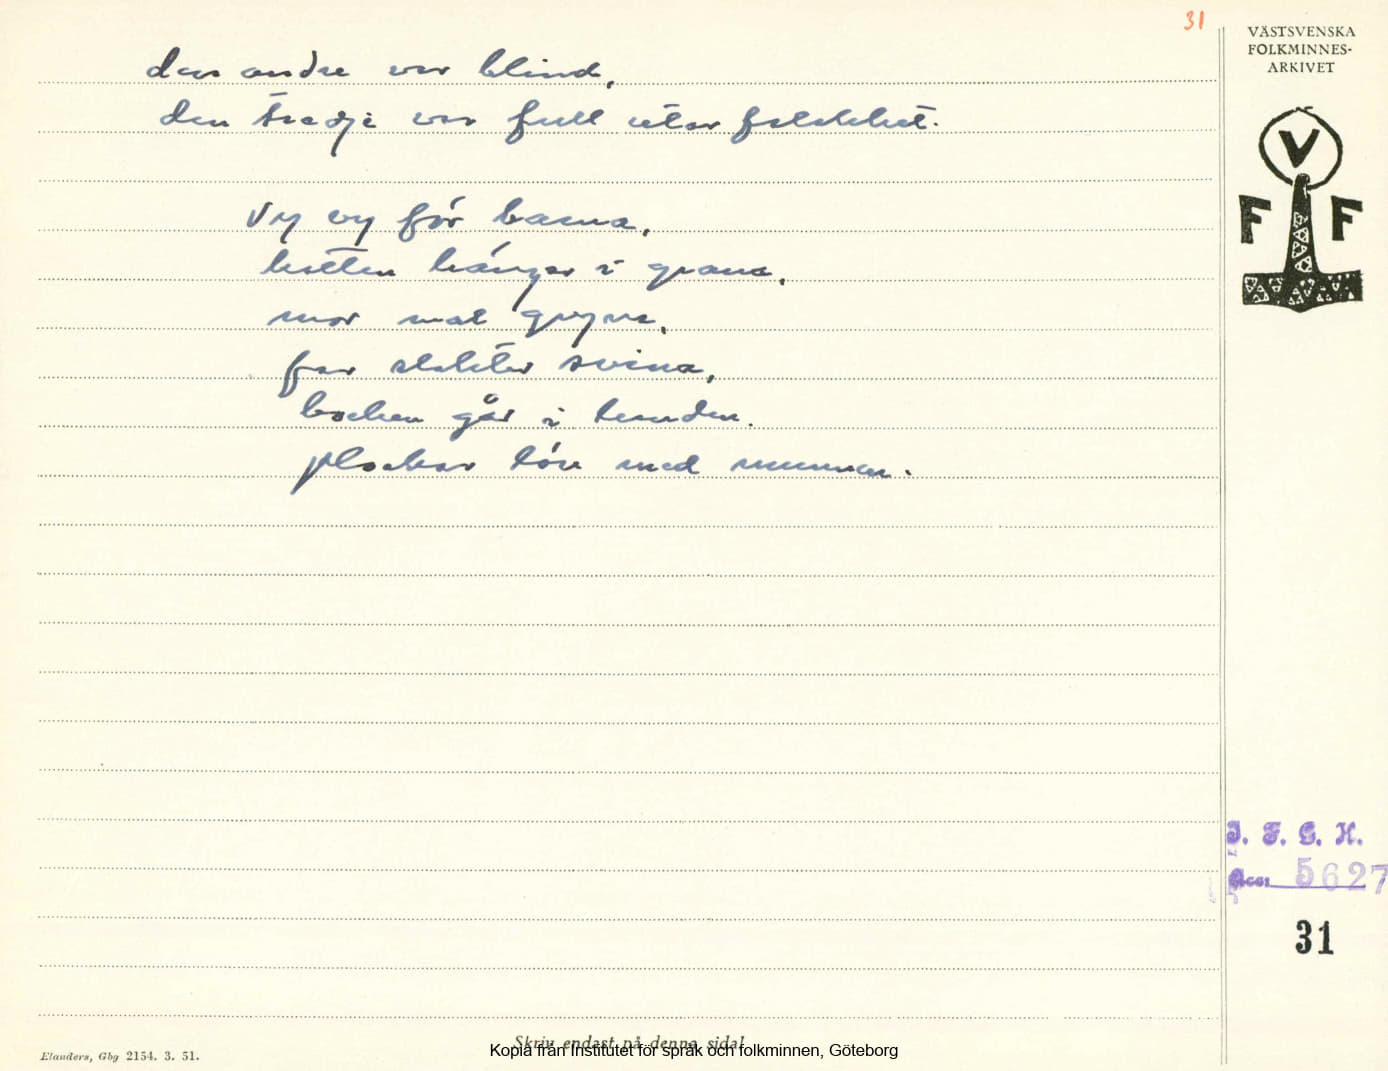 31
VÄSTSVENSKA
FOLKMINNES-
ARKIVET
V
F F
den andre var blind,
den tredje var full utav
Vy vy för barna,
kitteln hänger i grana,
mor mal gryna,
far slaktar svina,
bocken går i lunden,
plockar löv med munnen.
I. F. G. H.
Acc: 5627
31
Skriv endast på denna sida!
Kopia från Institutet för språk och folkminnen, Göteborg
Elanders, Gbg 2154. 3. 51.